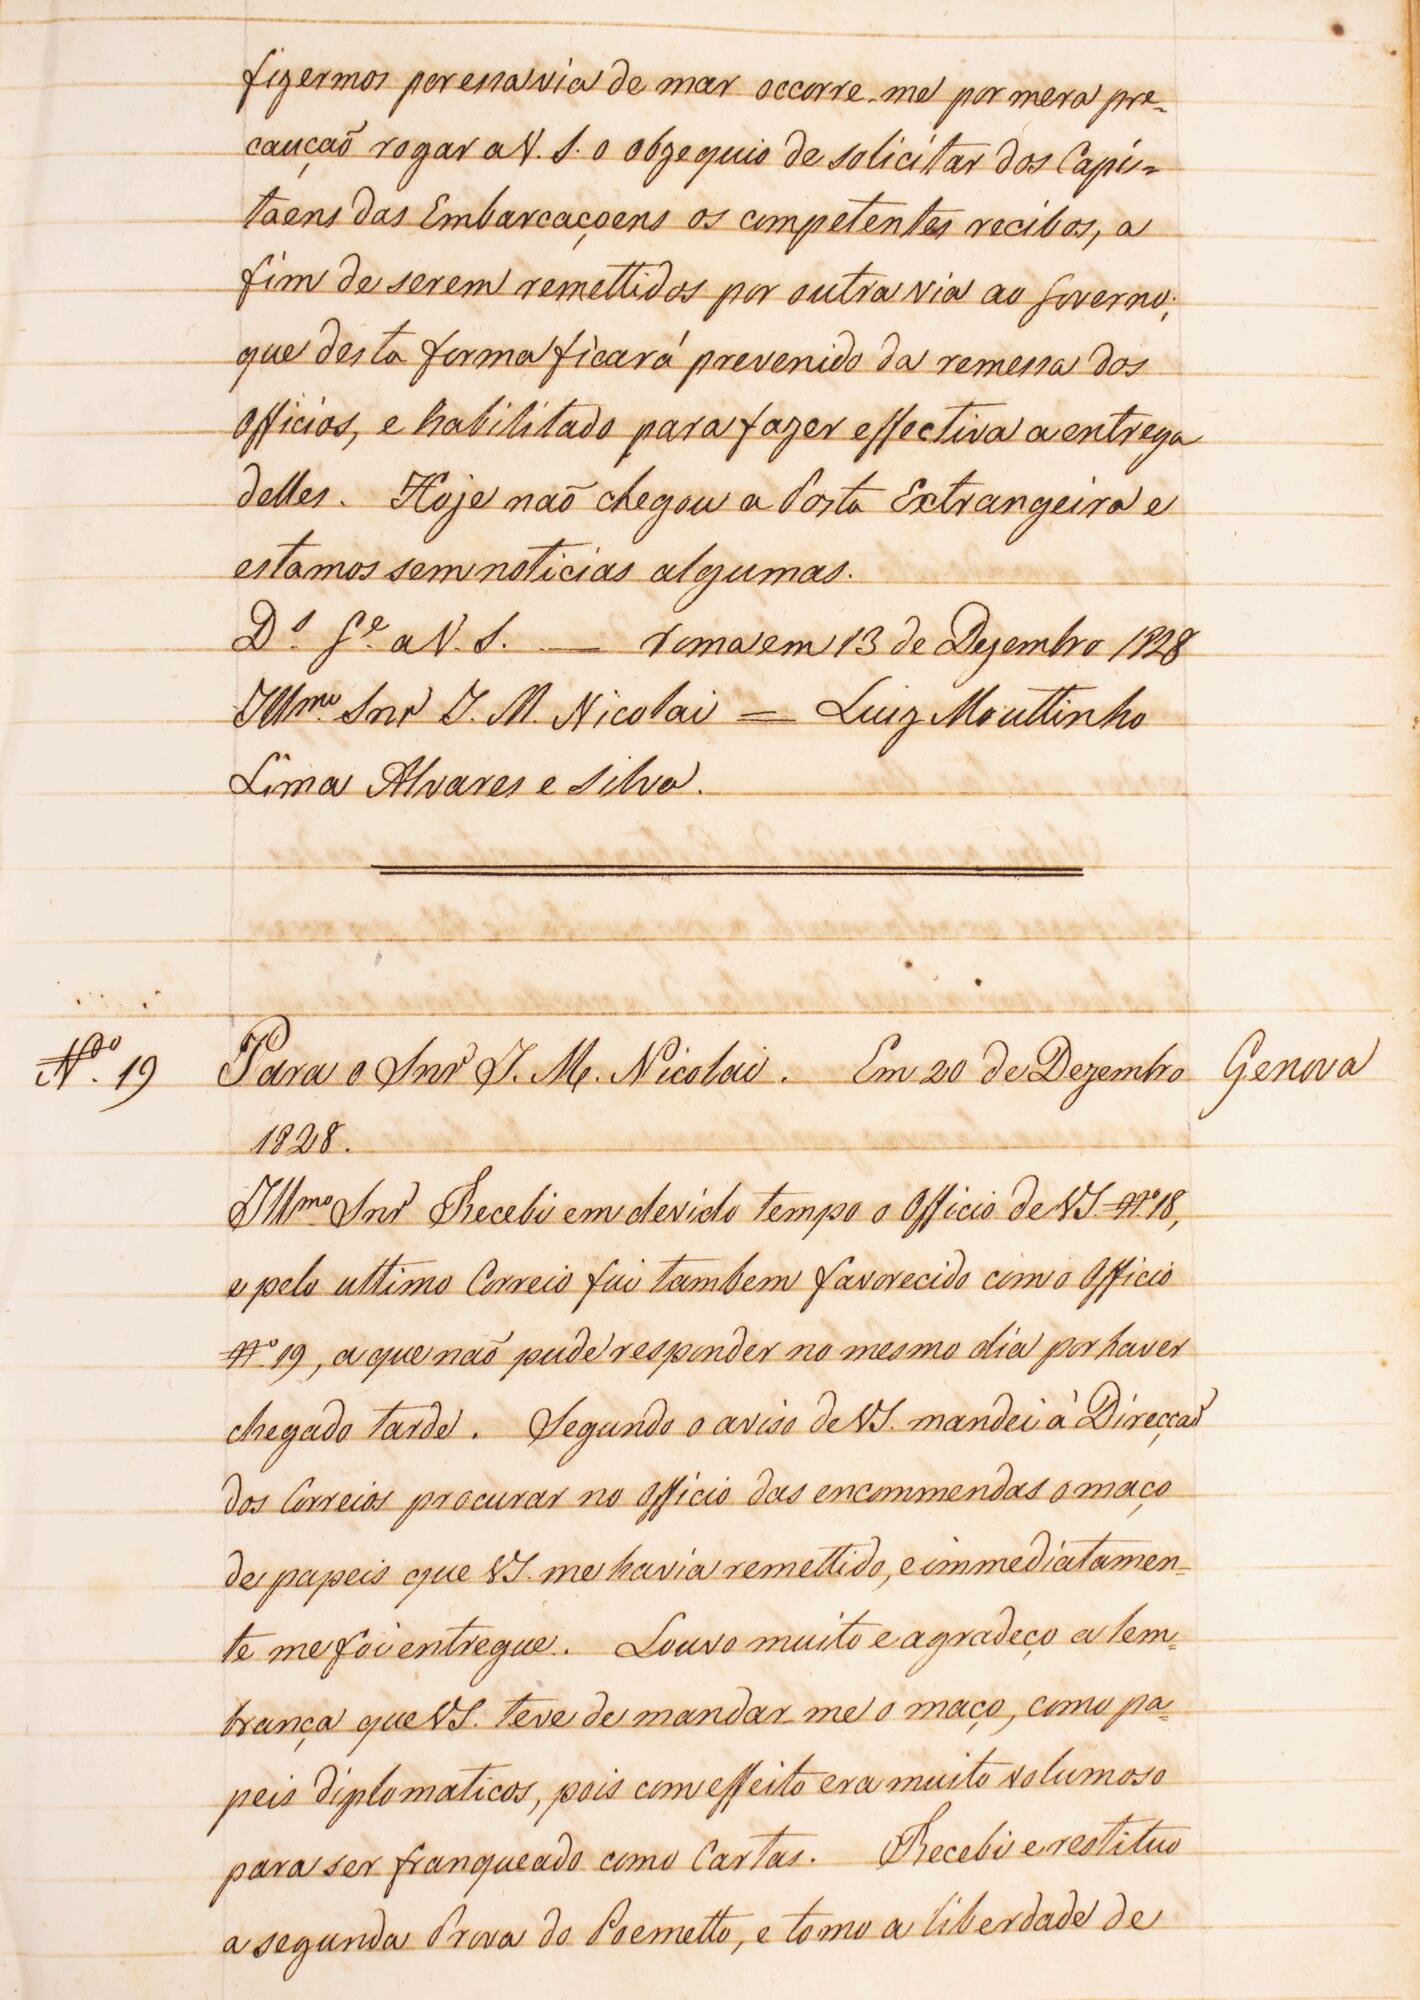 fizermos por essa via de mar occorre-me por mera pre-
cauçaõ rogar a V. S. o obzequio de solicitar dos Capi-
taens das Embarcaçoens os competentes recibos, a
fim de serem remettidos por outra via ao Governo;
que desta forma ficará prevenido da remessa dos
Officios, e habilitado para fazer effectiva a entrega
delles. Hoje naõ chegou a Posta Extrangeira e
estamos sem noticias algumas.
Ds. Ge. a V. S. — Roma em 13 de Dezembro 1828
Illmo. Snr J. M. Nicolai = Luiz Mouttinho
Lima Alvares e Silva.
No. 19 Para o Snr J. M. Nicolai. Em 20 de Dezembro Genova
1828.
Illmo. Snr Recebi em devido tempo o Officio de VS. No. 18,
e pelo ultimo Correio fui tambem favorecido com o Officio
No. 19, a que naõ pude responder no mesmo dia por haver
chegado tarde. Segundo o aviso de VS. mandei à Direcçaõ
dos Correios procurar no Officio das encommendas o maço
de papeis que VS. me havia remettido, e immediatamen-
te me foi entregue. Louvo muito e agradeço a lem-
brança que VS. teve de mandar-me o maço, como pa-
peis diplomaticos, pois com effeito era muito volumoso
para ser franqueado como Cartas. Recebi e restituo
a segunda Prova do Poemetto, e tomo a liberdade de